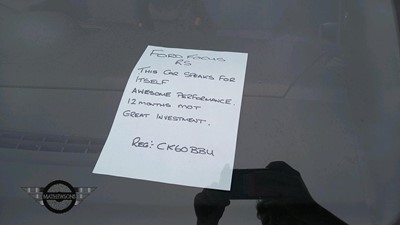 FORD FOCUS
RS
THIS CAR SPEAKS FOR
ITSELF
AWESOME PERFORMANCE.
12 MONTHS MOT
GREAT INVESTMENT.
REG: CK60BBU
MATHEWSONS